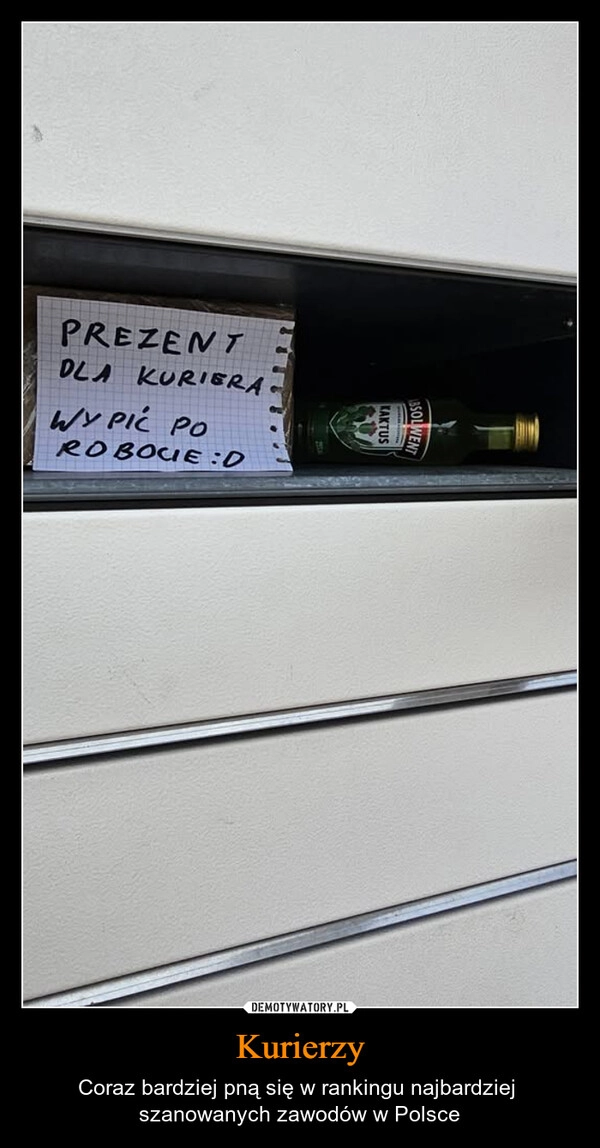 PREZENT
DLA KURIERA
WYPIĆ PO
ROBOCIE :D
ABSOLWENT
KAKTUS
DEMOTYWATORY.PL
Kurierzy
Coraz bardziej pną się w rankingu najbardziej
szanowanych zawodów w Polsce